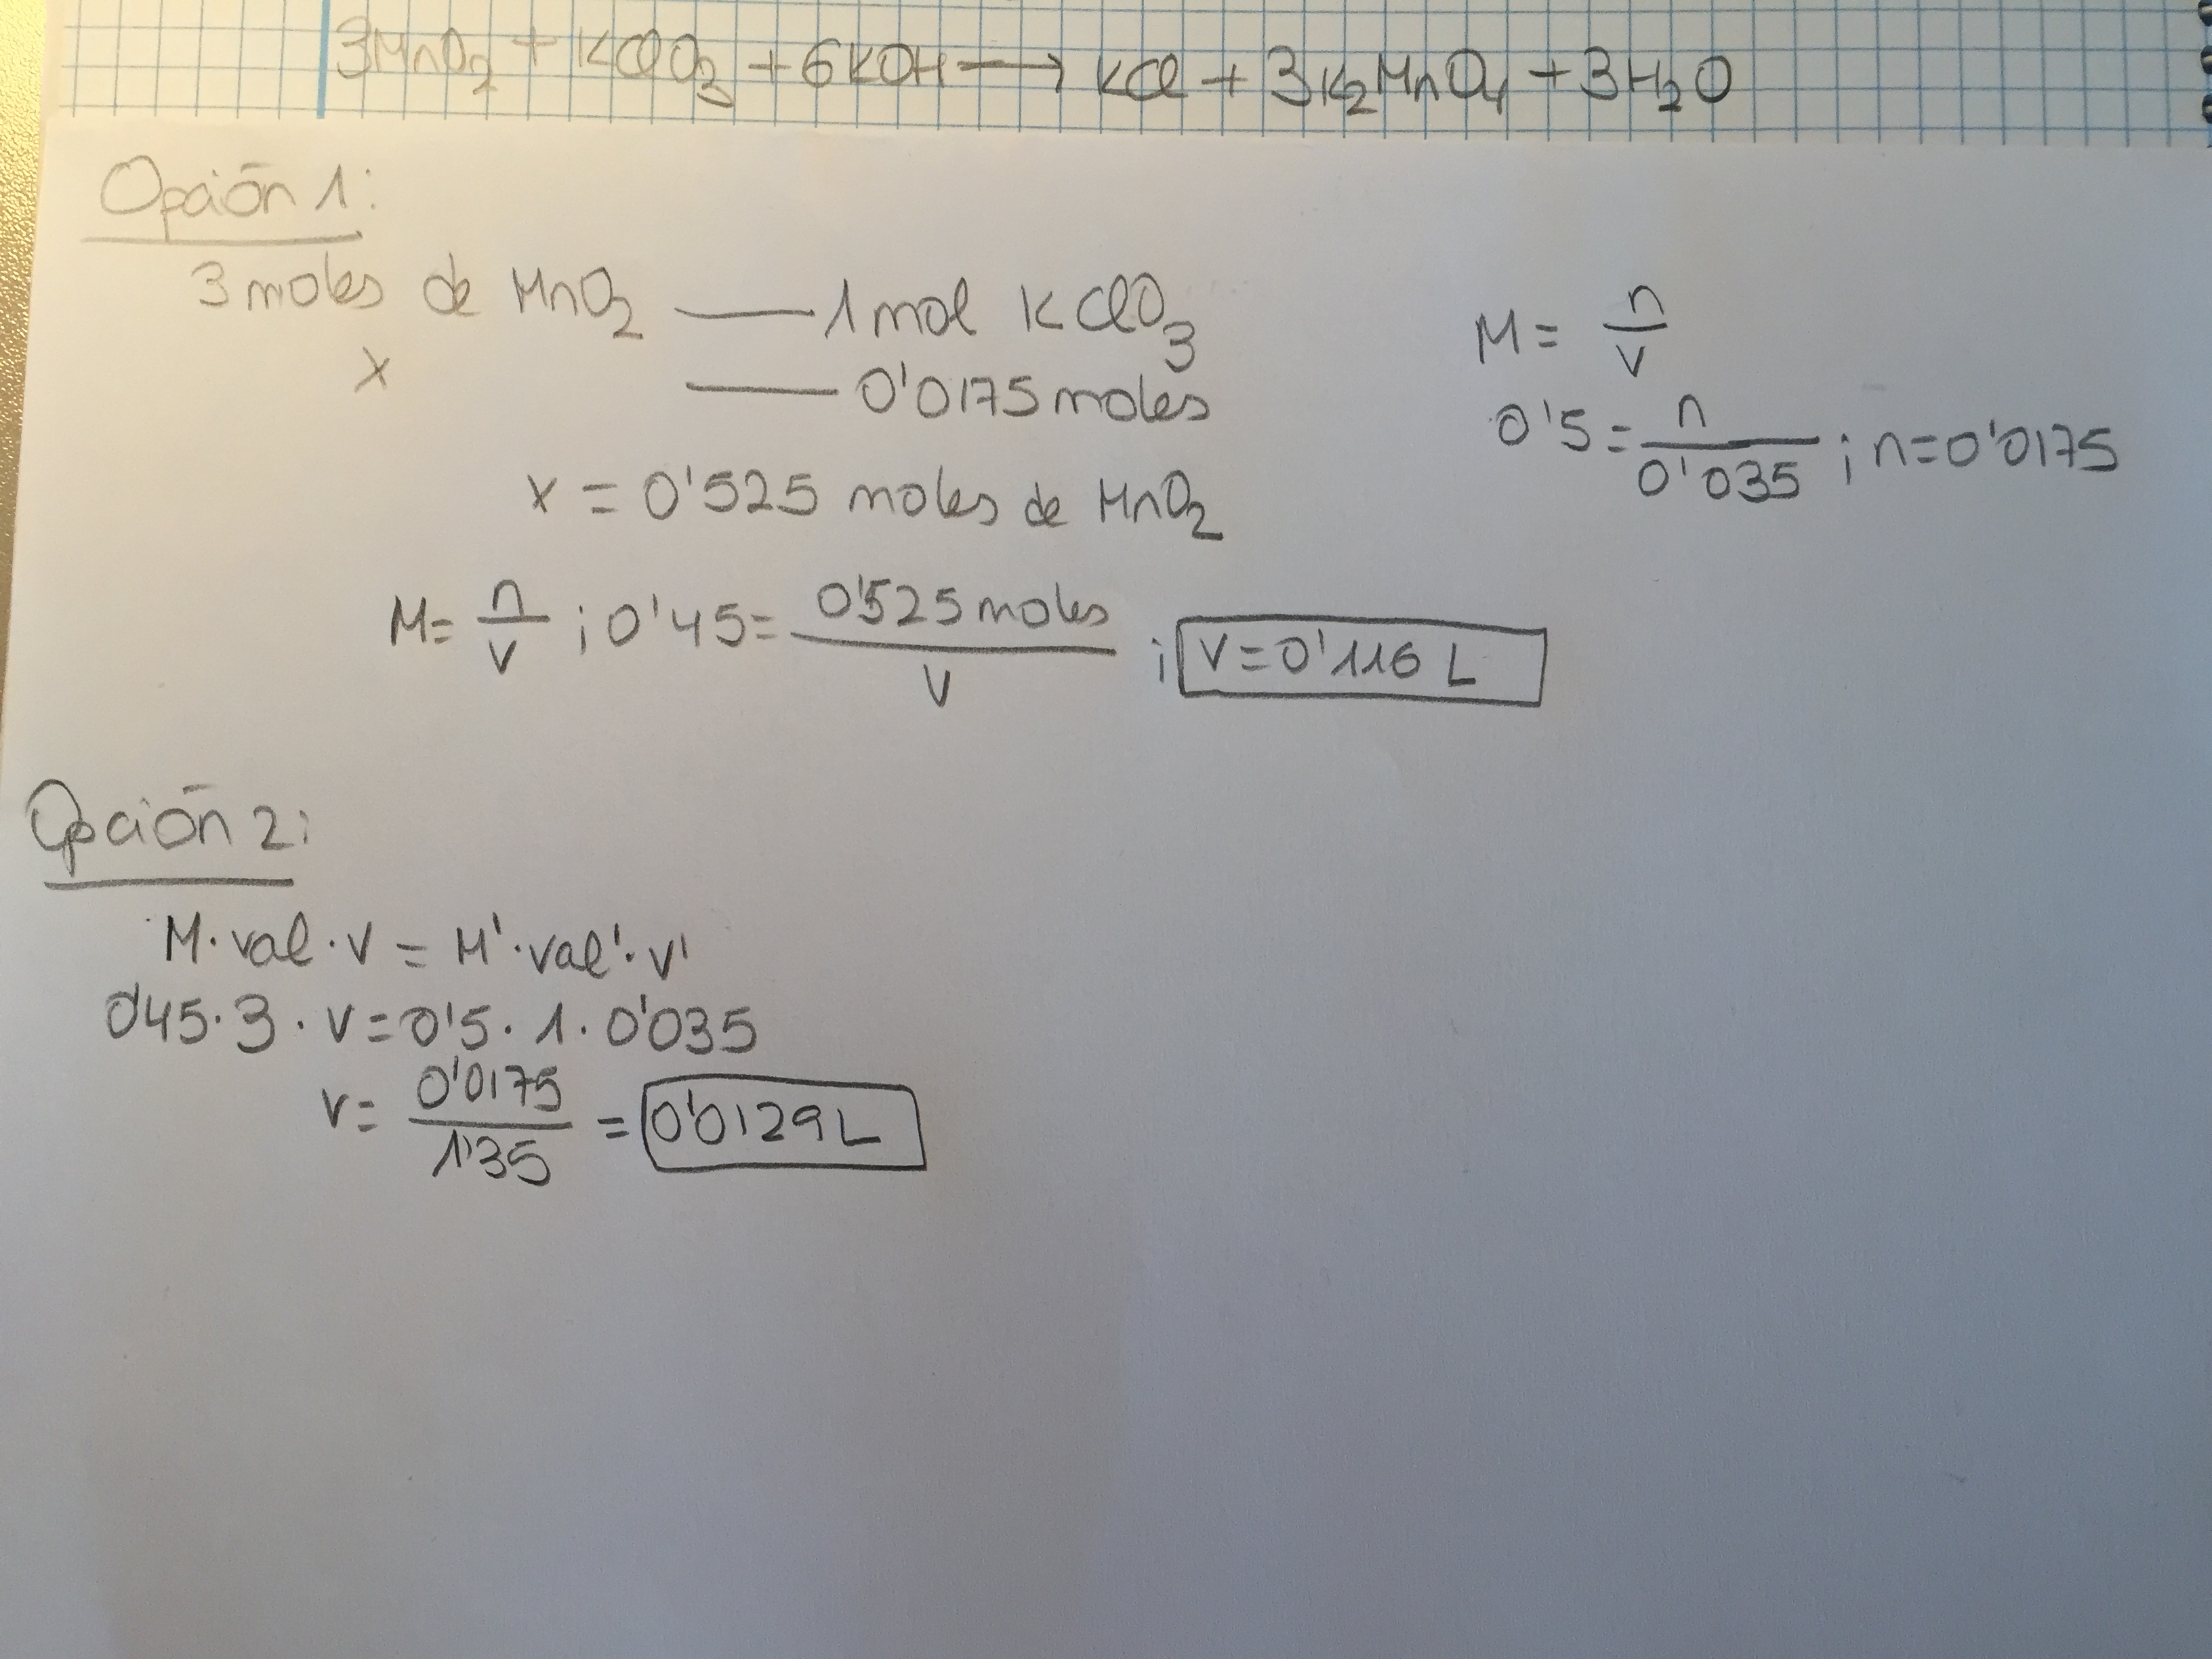 3MnO2 + KClO3 + 6KOH → KCl + 3K2MnO4 + 3H2O
Opción 1:
3 moles de MnO2 — 1 mol KClO3
x — 0'0175 moles
x = 0'525 moles de MnO2
M = n/v
0'5 = n/0'035 ; n = 0'0175
M = n/v ; 0'45 = 0'525 moles/V ; V = 0'116 L
Opción 2:
M · val · v = M' · val' · v'
0'45 · 3 · v = 0'5 · 1 · 0'035
v = 0'0175/1'35 = 0'0129 L